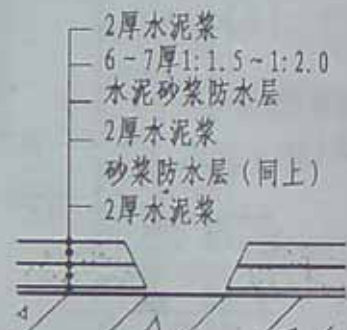 2厚水泥浆
6-7厚1:1.5~1:2.0
水泥砂浆防水层
2厚水泥浆
砂浆防水层(同上)
2厚水泥浆